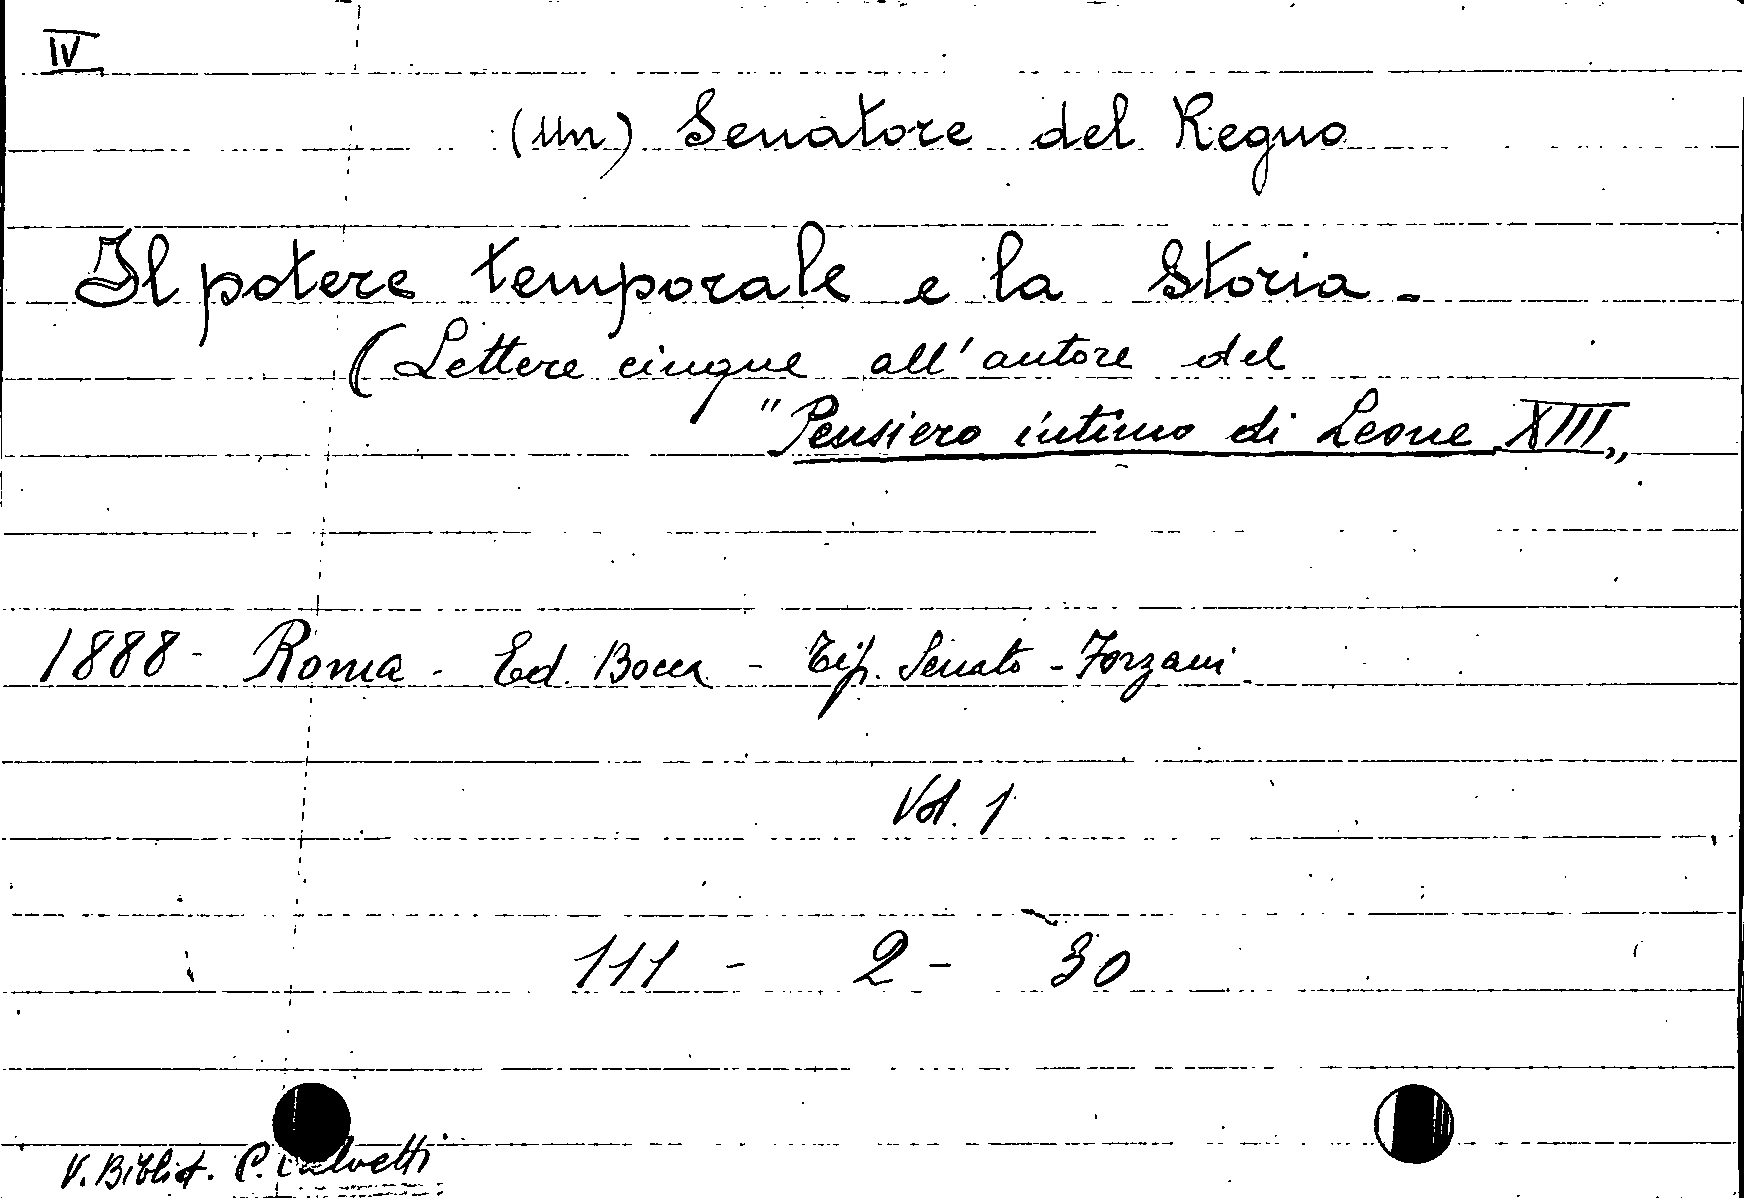 IV
(Un) Senatore del Regno
Il potere temporale e la Storia -
(Lettere cinque all'autore del
"Pensiero intimo di Leone XIII"
1888 - Roma - Ed. Bocca - Tip. Senato - Forzani
Vol. 1
111 - 2 - 30
V. Bibliot. C. Calvetti